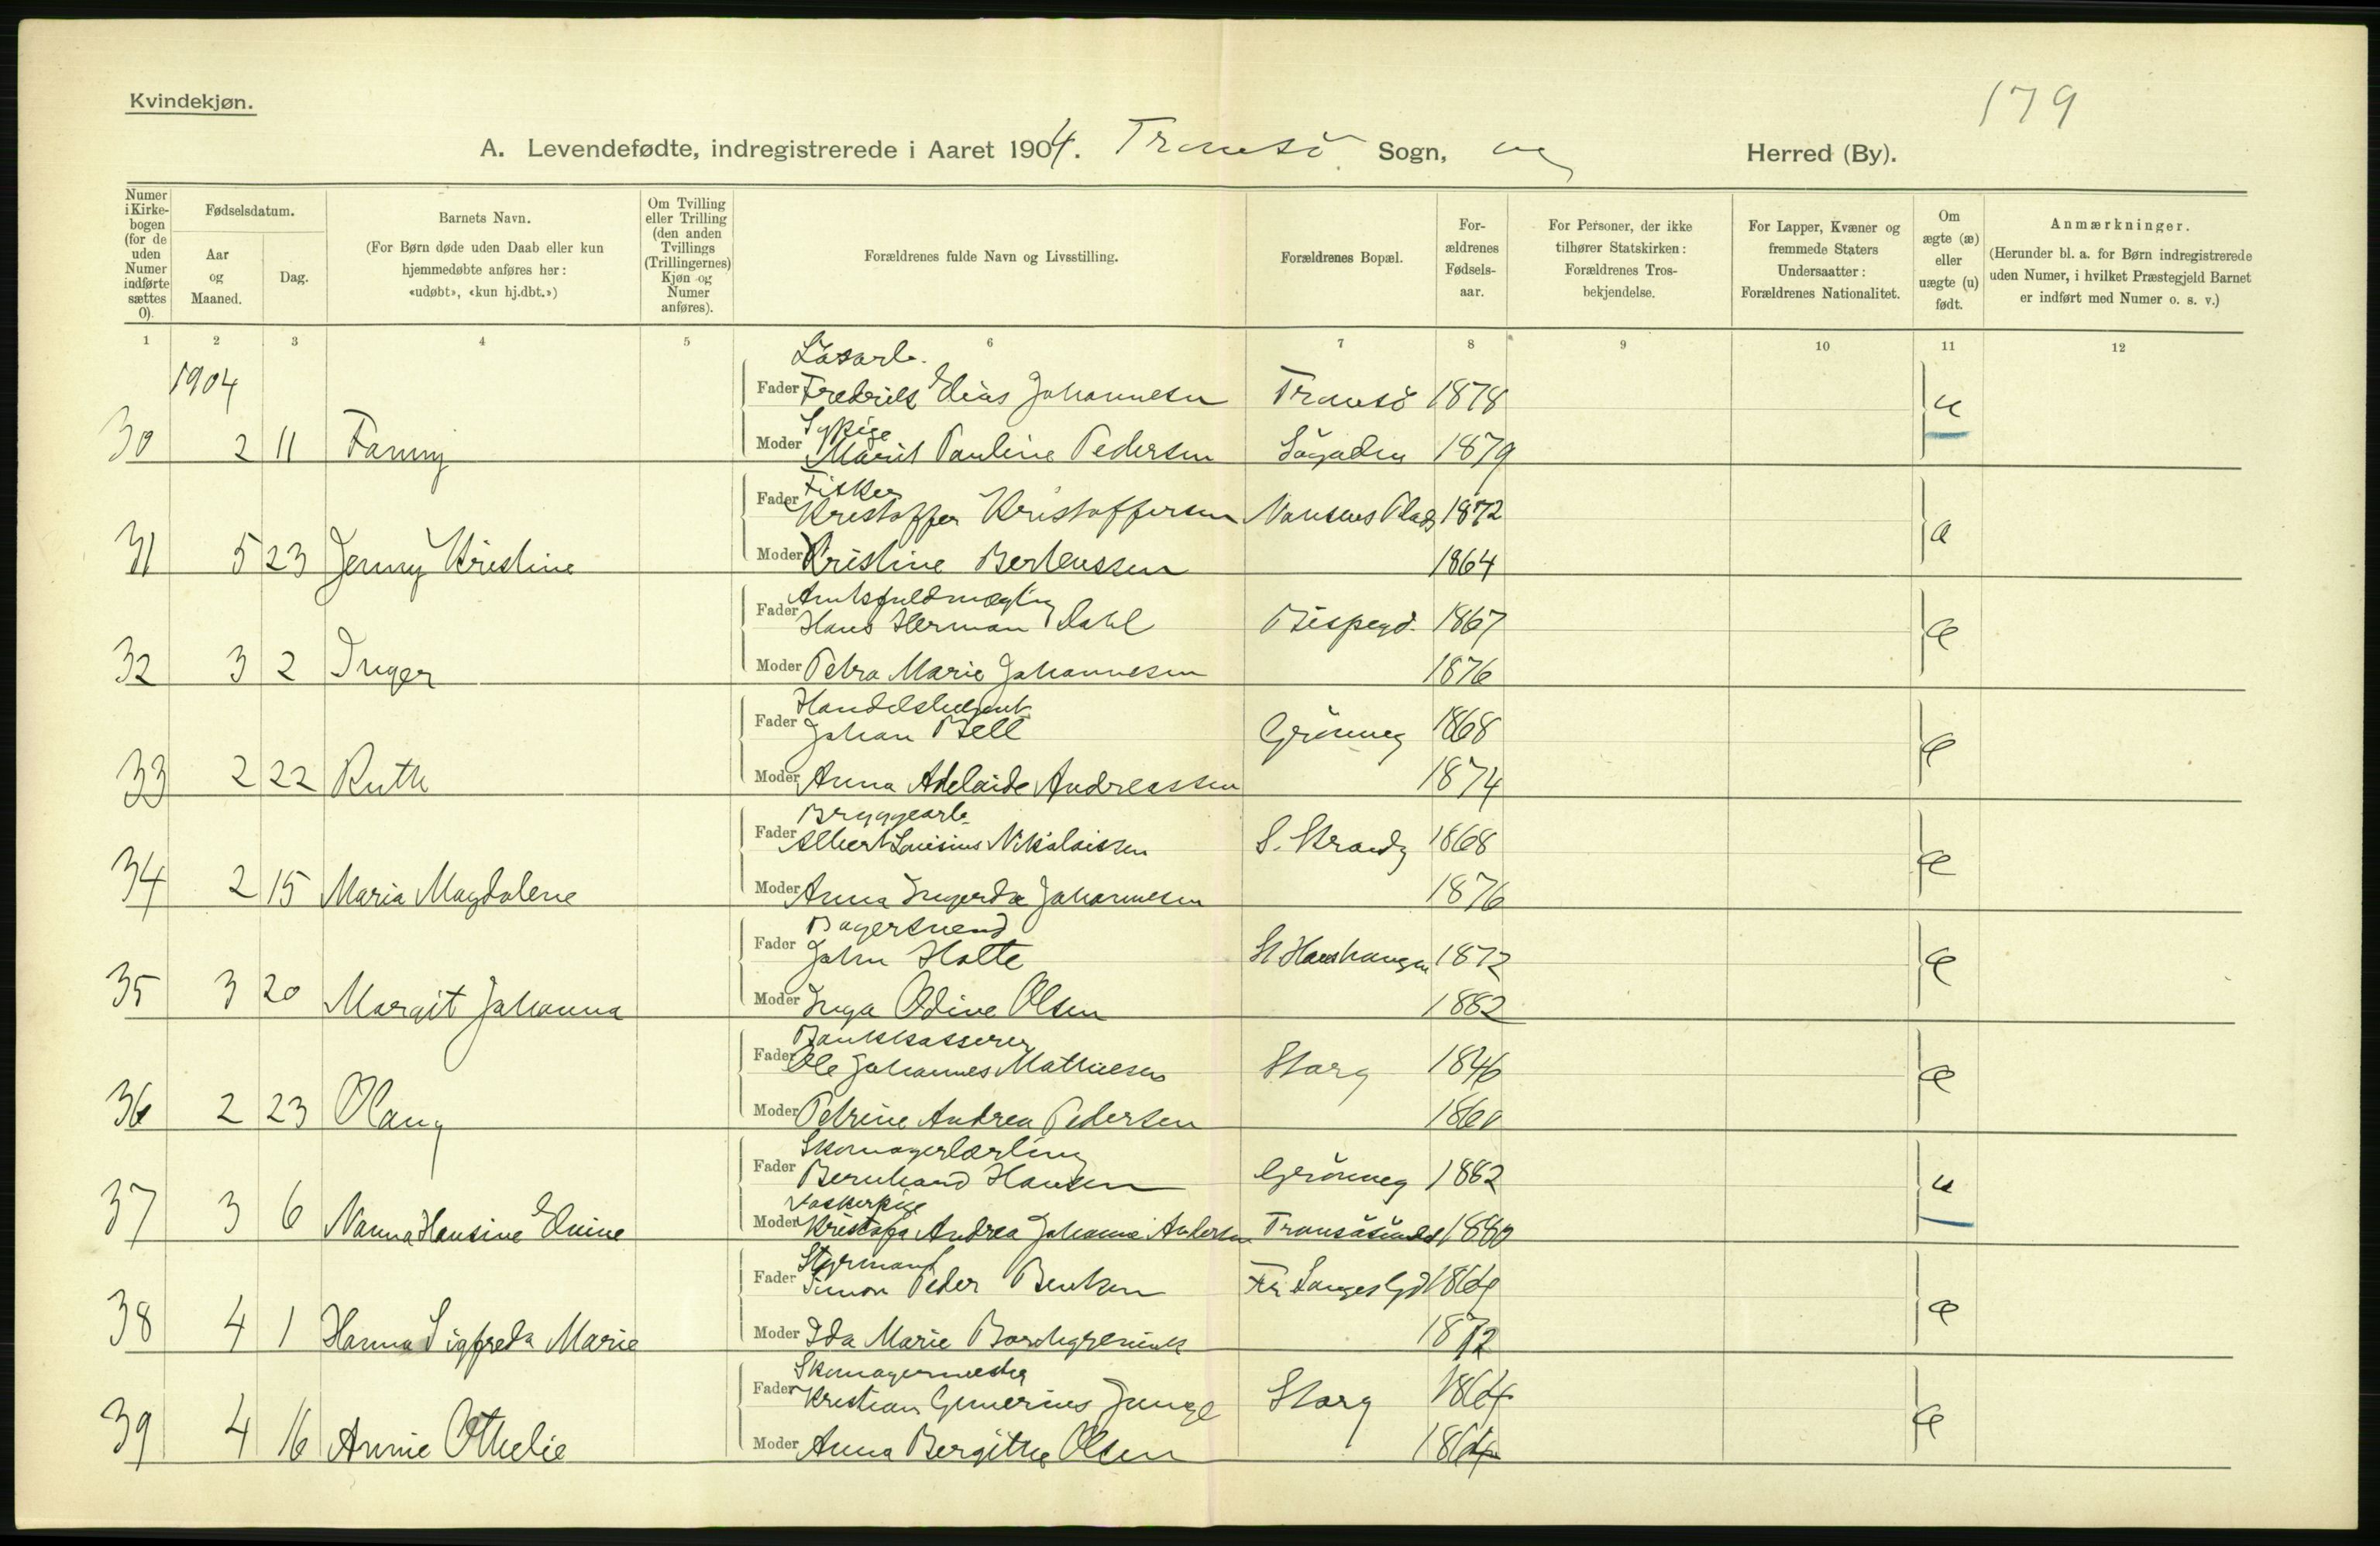 179
Kvindekjøn.
A. Levendefødte, indregistrerede i Aaret 1904. Tromsö Sogn, Herred (By).
Numer i Kirkebogen (for de uden Numer indførte sættes 0).
Fødselsdatum.
Aar og Maaned.
Dag.
Barnets Navn.
(For Børn døde uden Daab eller kun hjemmedøbte anføres her: «udøbt», «kun hj.dbt.»)
Om Tvilling eller Trilling (den anden Tvillings (Trillingernes) Kjøn og Numer anføres).
Forældrenes fulde Navn og Livsstilling.
Forældrenes Bopæl.
Forældrenes Fødselsaar.
For Personer, der ikke tilhører Statskirken: Forældrenes Trosbekjendelse.
For Lapper, Kvæner og fremmede Staters Undersaatter: Forældrenes Nationalitet.
Om ægte (æ) eller uægte (u) født.
Anmærkninger.
(Herunder bl. a. for Børn indregistrerede uden Numer, i hvilket Præstegjeld Barnet er indført med Numer o. s. v.)
1 2 3 4 5 6 7 8 9 10 11 12
1904
Fader Fredrik Elias Johannesen Tromsö 1878 u
Sypige
30 2 11 Fanny Moder Marit Pauline Pedersen 1879
Fisker
Fader Kristoffer Kristoffersen Nansens Plads 1872 æ
31 5 23 Jenny Kristine Moder Kristine Berteussen 1864
Amtsfuldmægtig
Fader Hans Herman Dahl Bispegd. 1867 æ
32 3 2 Inger Moder Petra Marie Johannesen 1876
Handelsbetjent
Fader Johan Bell Grönneg 1868 æ
33 2 22 Ruth Moder Anna Adelaide Andreassen 1874
Bryggearb.
Fader Albert Nikolaisen S. Strandg 1868 æ
34 2 15 Maria Magdalene Moder Anna Ingerda Johannesen 1876
Bagersvend
Fader John Holte St Hanshaugen 1872 æ
35 3 20 Margit Johanna Moder Inga Odine Olsen 1882
Bankkasserer
Fader Ole Johannes Mathiesen Storg 1846 æ
36 2 23 Olaug Moder Petrine Andrea Pedersen 1860
Skomagerlærling
Fader Bernhard Hansen Grönneg 1882 u
Vaskerpige
37 3 6 Nanna Hansine Elvine Moder Kristofa Andrea Johanna Andersen Tromsösundet 1880
Styrmand
Fader Simon Peder Bentzen Fr. Langes Gd 1864 æ
38 4 1 Hanna Sigfreda Marie Moder Ida Marie Borchgrevink 1872
Skomagermester
Fader Kristian Gunerius Junge Storg 1864 æ
39 4 16 Annie Othelie Moder Anna Bergitte Olsen 1864